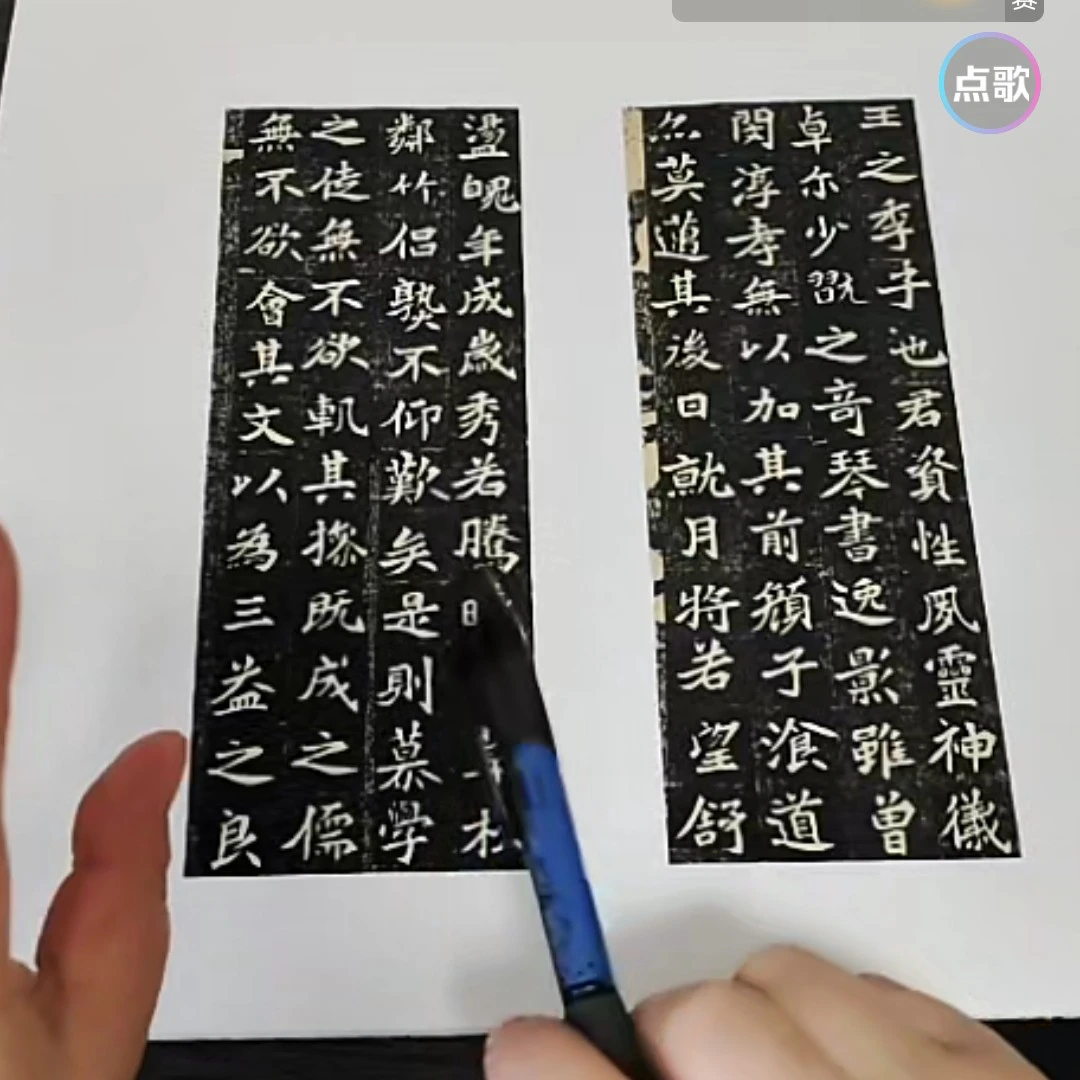 点歌
王之季子也君資性夙靈神儀
卓尔少翫之奇琴書逸影雖曾
閔淳孝無以加其前顏子湌道
尒莫邁其後日就月將若望舒
盪魄年成歲秀若騰
鄰竹侣熟不仰歎矣是則慕学
之徒無不欲軌其操既成之儒
無不欲會其文以為三益之良